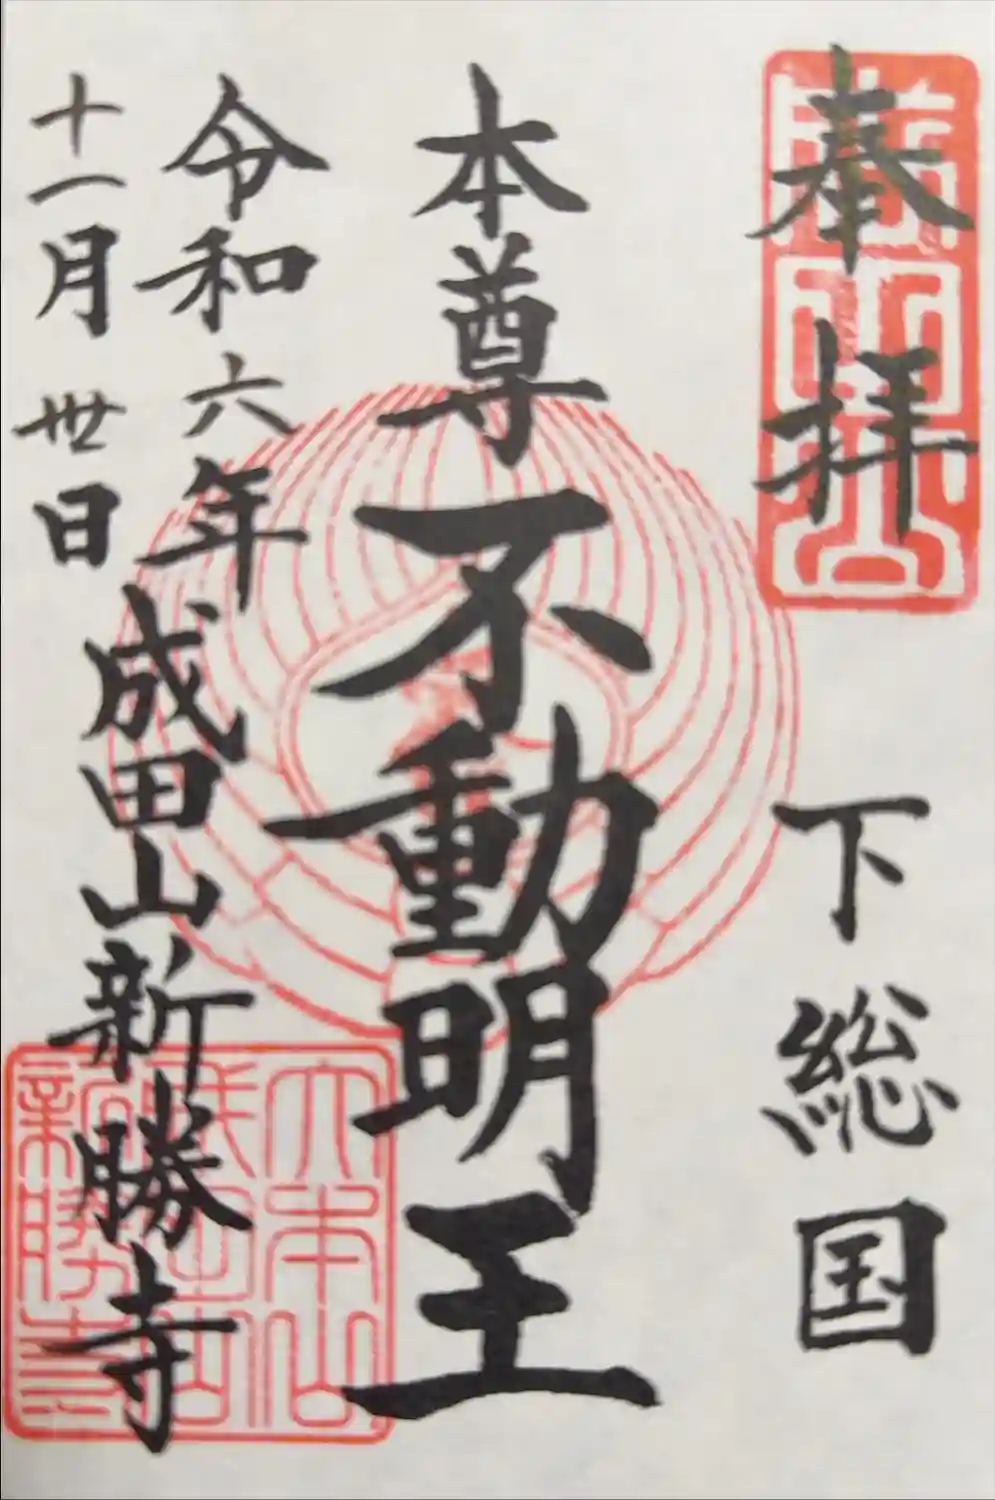 奉拝
下総国
本尊不動明王
令和六年
十一月丗日
成田山新勝寺
大本山
成田山
新勝寺